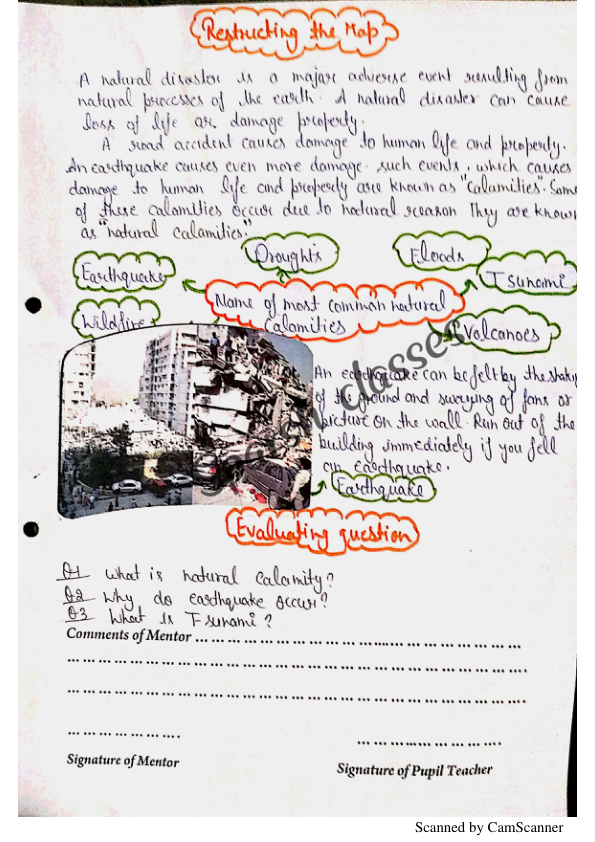 Restructing the Map
A natural disaster is a major adverse event resulting from
natural processes of the earth. A natural disaster can cause
loss of life or damage property.
A road accident causes damage to human life and property.
An earthquake causes even more damage. such events, which causes
damage to human life and property are known as "calamities". Some
of these calamities occur due to natural reason They are known
as "natural calamities."
Droughts
Floods
Earthquake
Tsunami
Name of most common natural
calamities
Wildfire
Volcanoes
An earthquake can be felt by the shaking
of the ground and swaying of fans or
picture on the wall. Run out of the
building immediately if you fell
an earthquake.
Earthquake
classes
Evaluating question
Q1 What is natural calamity?
Q2 Why do earthquake occur?
Q3 What is Tsunami?
Comments of Mentor
Signature of Mentor
Signature of Pupil Teacher
Scanned by CamScanner